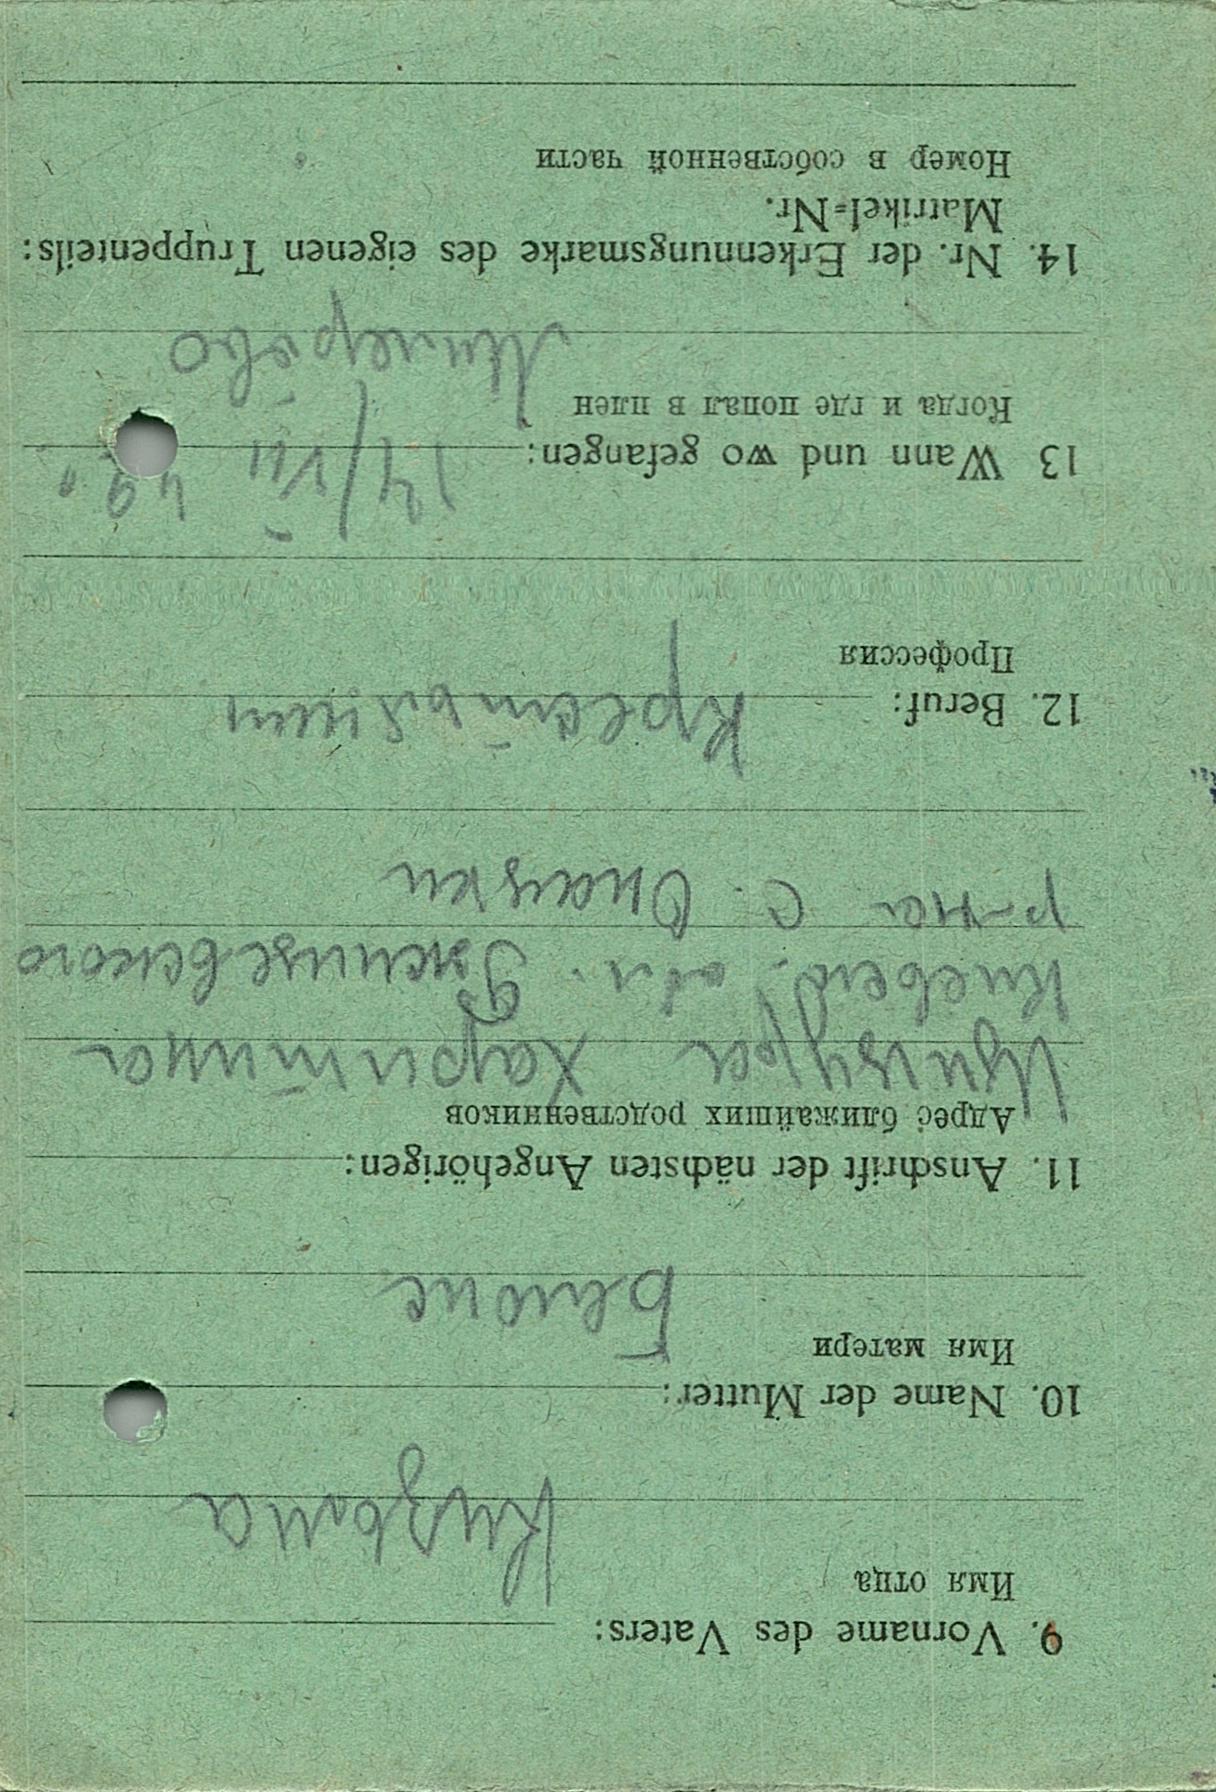 9. Vorname des Vaters:
Имя отца
Кизьма
10. Name der Mutter:
Имя матери
11. Anschrift der nächsten Angehörigen:
Адрес ближайших родственников
Харитина
Киевск. обл.
р-на с.
12. Beruf:
Профессия
Крестьянин
13 Wann und wo gefangen:
Когда и где попал в плен
14/VII
Милерово
14. Nr. der Erkennungsmarke des eigenen Truppenteils:
Matrikel=Nr.
Номер в собственной части